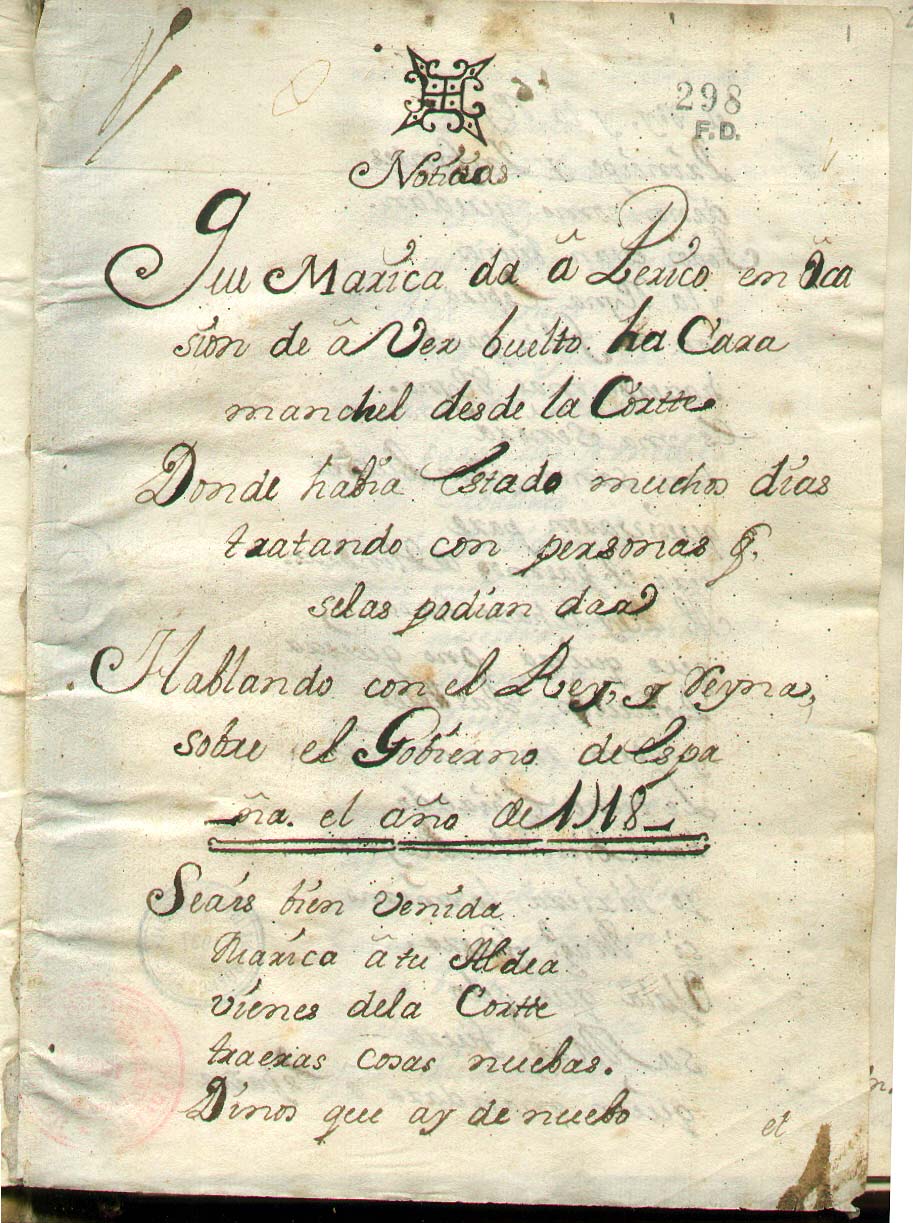 1
298
F.D.
Noticias
Que Marica da â Perico en ôca
sion de â Ver buelto ha Cara
manchel desde la Cortte
Donde habia Estado muchos dias
tratando con personas q.
selas podian dar
Hablando con el Rey, y Reyna,
sobre el Gobierno de Espa
ña. el año de 1718
Seais bien venida
Marica â tu Aldea
vienes dela Cortte
traeras cosas nuebas.
Dinos que ay de nuebo
et